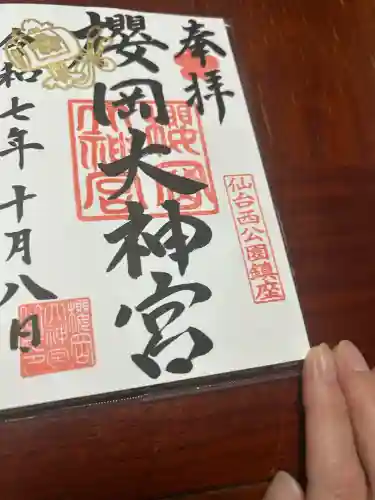 奉拝
仙台西公園鎮座
櫻岡大神宮
櫻岡大神宮
令和七年十月八日
櫻岡大神宮